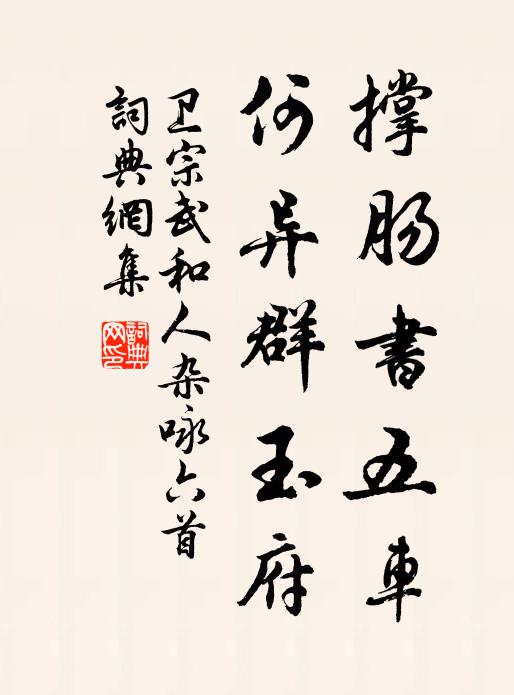 撑肠书五車
何异群玉府
卫宗武和人杂咏六首
詞典網集
詞典网印